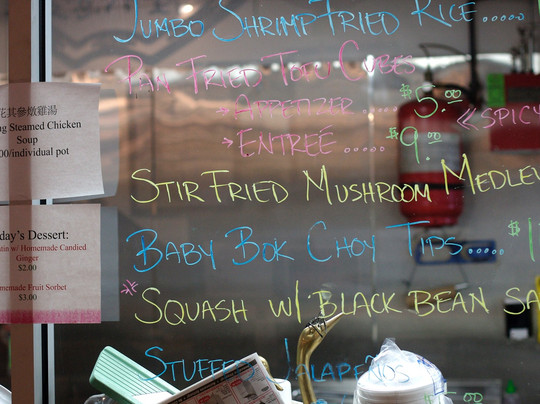 Jumbo Shrimp Fried Rice.....
Pan Fried Tofu Cubes
→ Appetizer .... $5.00
→ Entreé ..... $9.00
«Spicy
Stir Fried Mushroom Medley
Baby Bok Choy Tips..... $
* Squash w/ Black Bean Sa
Stuffed Jalapeños
花其參燉雞湯
ng Steamed Chicken
Soup
00/individual pot
day's Dessert:
tin w/ Homemade Candied
Ginger
$2.00
memade Fruit Sorbet
$3.00